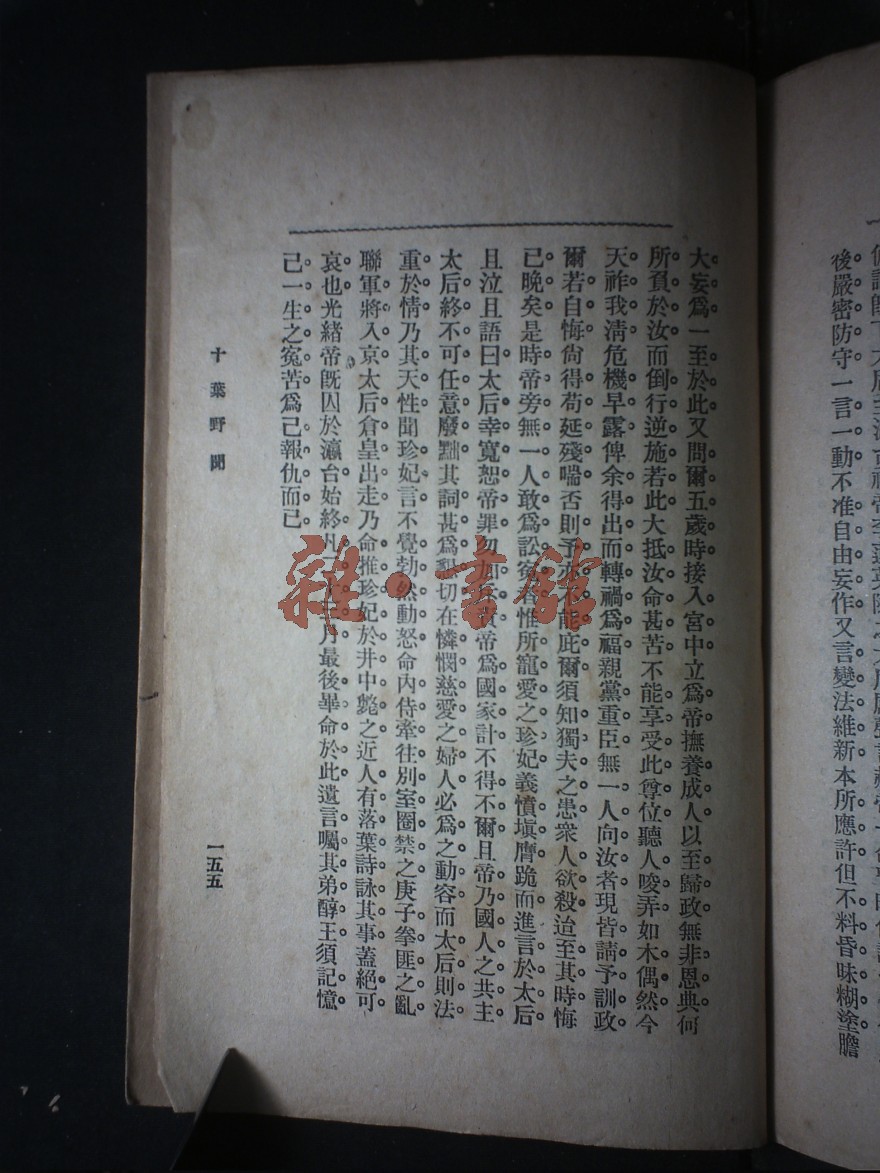 後嚴密防守一言一動不准自由妄作又言變法維新本所應許但不料昏昧糊塗膽
大妄爲一至於此又問爾五歲時接入宮中立爲帝撫養成人以至歸政無非恩典何
所負於汝而倒行逆施若此大抵汝命甚苦不能享受此尊位聽人唆弄如木偶然今
天祚我清危機早露俾余得出而轉禍爲福親黨重臣無一人向汝者現皆請予訓政
爾若自悔尙得苟延殘喘否則予亦不能庇爾須知獨夫之患衆人欲殺迨至其時悔
已晚矣是時帝旁無一人敢爲訟冤者惟所寵愛之珍妃義憤塡膺跪而進言於太后
且泣且語曰太后幸寬恕帝罪勿加責帝爲國家計不得不爾且帝乃國人之共主
太后終不可任意廢黜其詞甚爲懇切在憐憫慈愛之婦人必爲之動容而太后則法
重於情乃其天性聞珍妃言不覺勃然動怒命內侍牽往別室圈禁之庚子拳匪之亂
聯軍將入京太后倉皇出走乃命推珍妃於井中斃之近人有落葉詩詠其事蓋絕可
哀也光緒帝旣囚於瀛台始終凡月最後畢命於此遺言囑其弟醇王須記憶
己一生之冤苦爲己報仇而已
十葉野聞
一五五
雜·書館